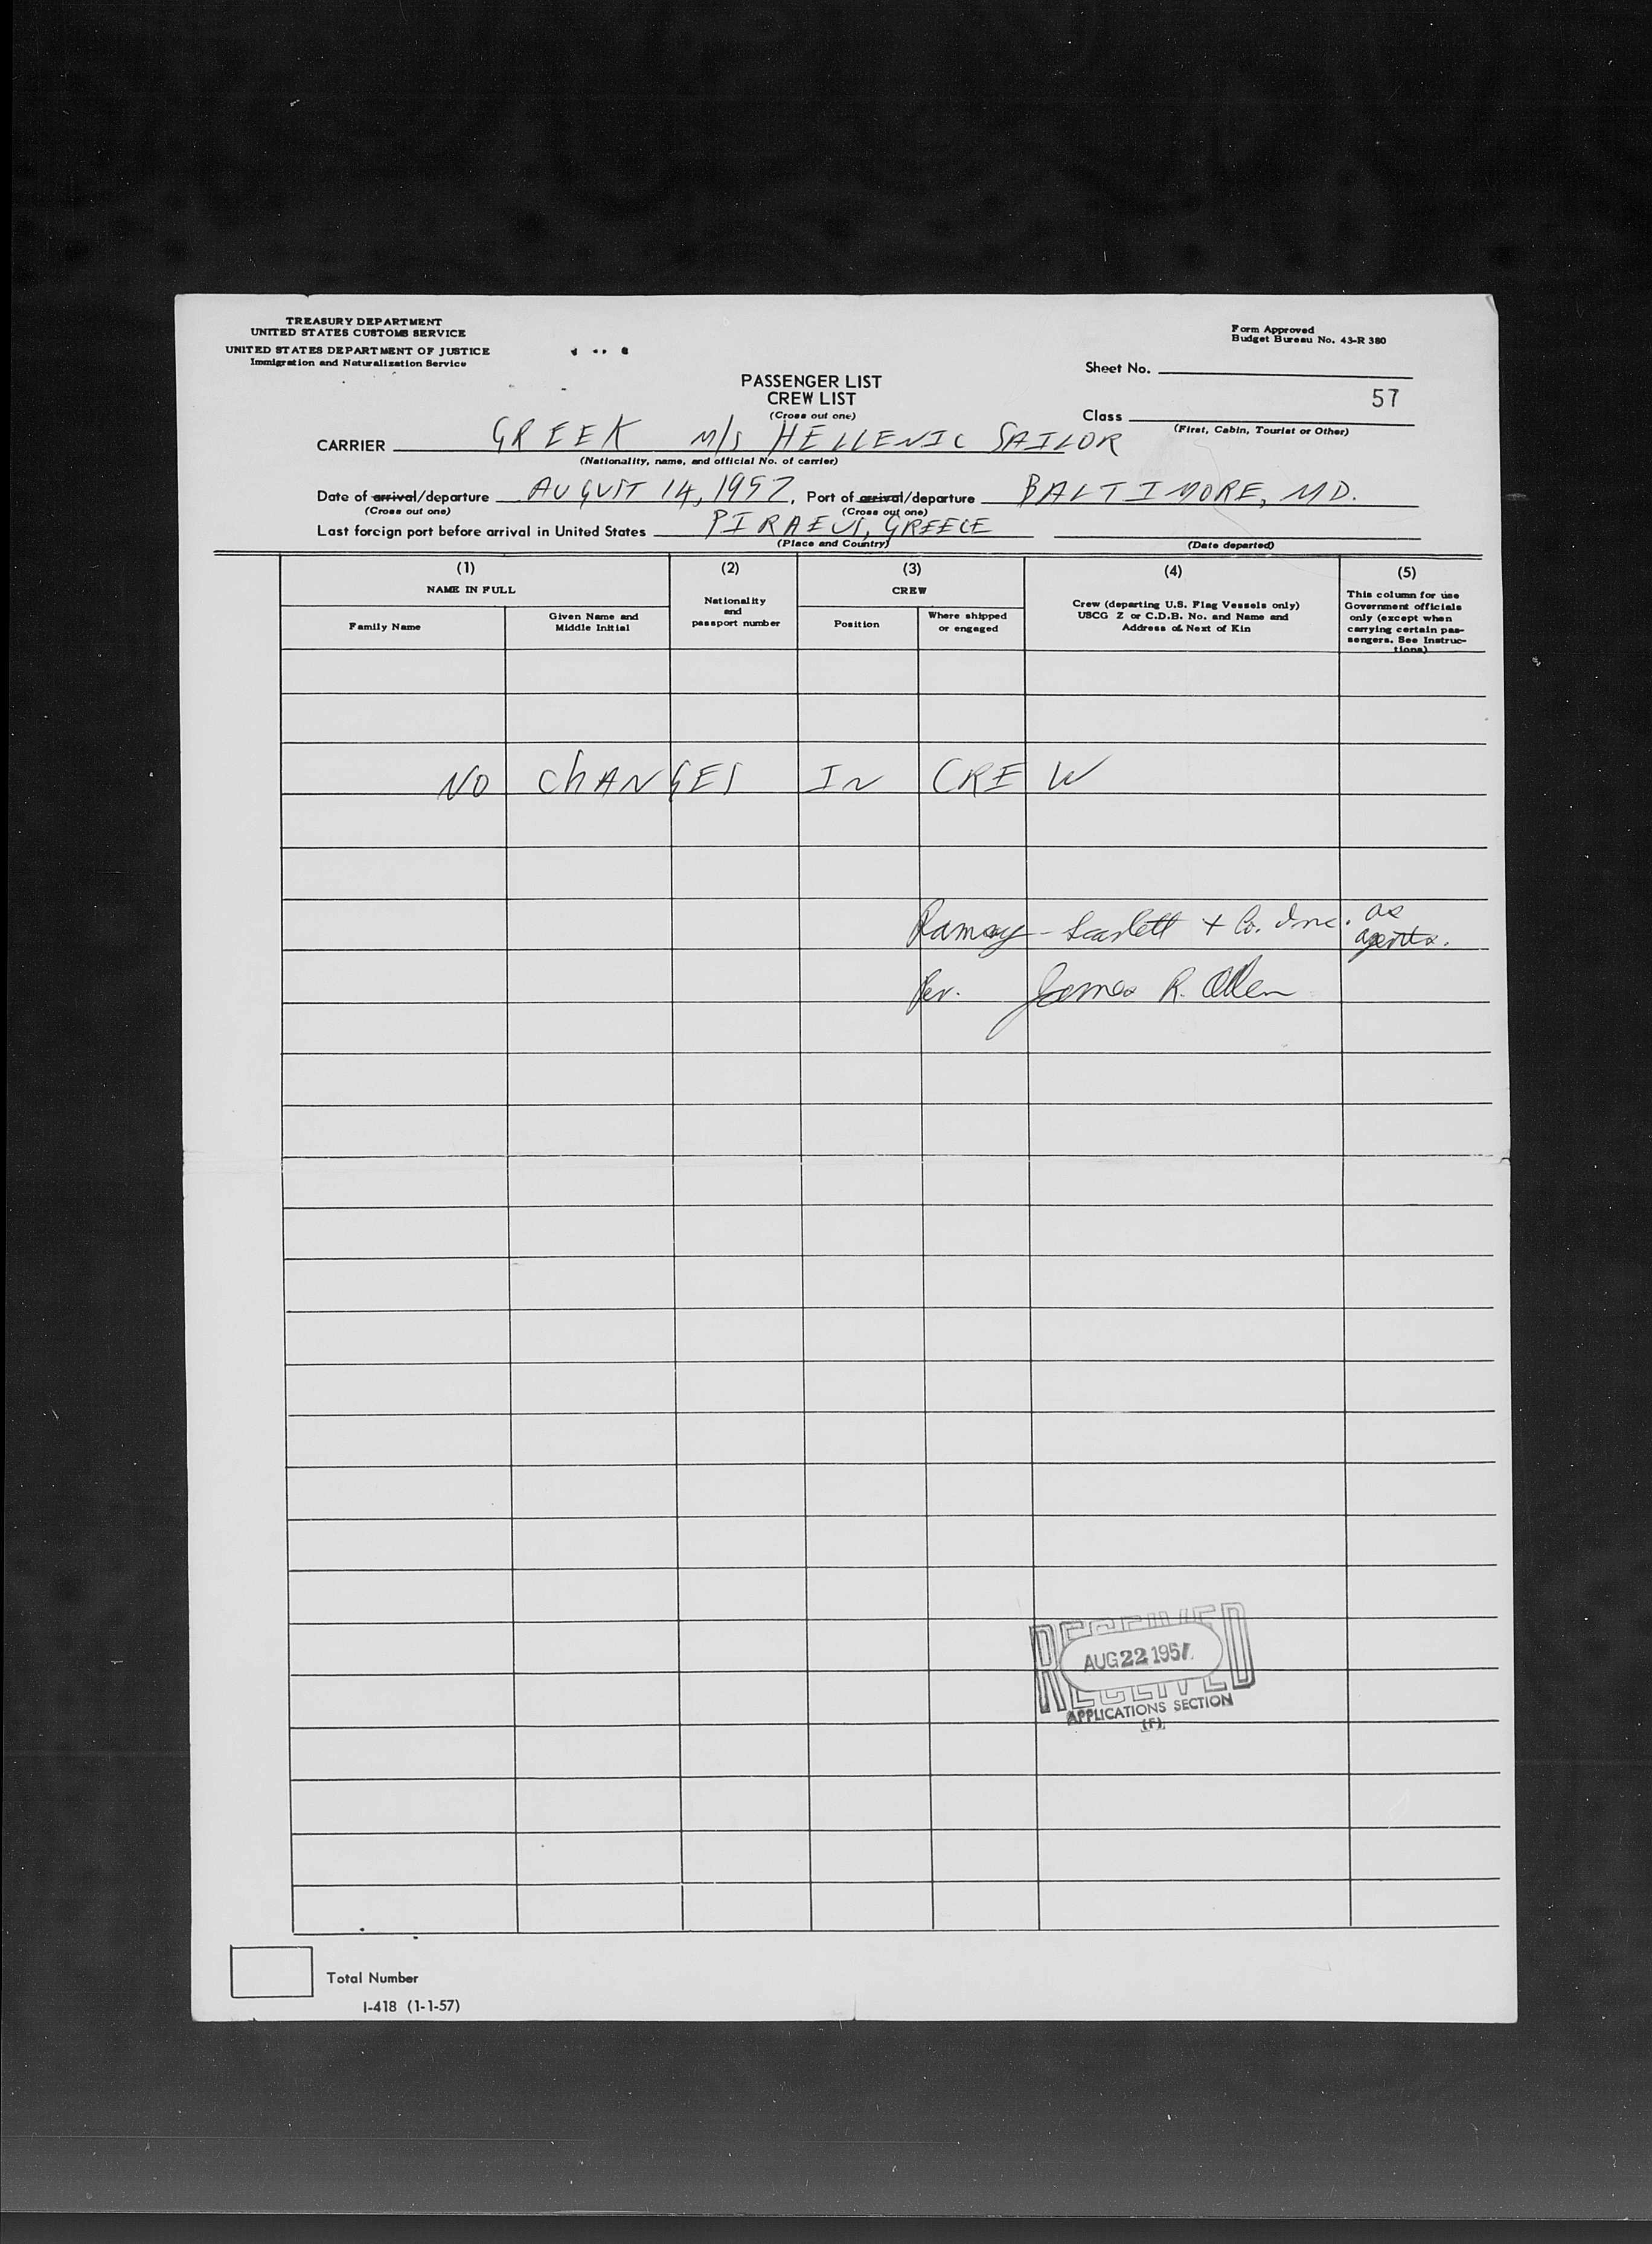 TREASURY DEPARTMENT
UNITED STATES CUSTOMS SERVICE
UNITED STATES DEPARTMENT OF JUSTICE
Immigration and Naturalization Service
Form Approved
Budget Bureau No. 43-R 380
Sheet No.
57
PASSENGER LIST
CREW LIST
(Cross out one)
Class
(First, Cabin, Tourist or Other)
CARRIER GREEK M/S HELLENIC SAILOR
(Nationality, name, and official No. of carrier)
Date of arrival/departure AUGUST 14, 1957. Port of arrival/departure BALTIMORE, MD.
(Cross out one) (Cross out one)
Last foreign port before arrival in United States PIRAEUS, GREECE
(Place and Country) (Date departed)
(1) (2) (3) (4) (5)
NAME IN FULL
Family Name
Given Name and
Middle Initial
Nationality
and
passport number
CREW
Position
Where shipped
or engaged
Crew (departing U.S. Flag Vessels only)
USCG Z or C.D.B. No. and Name and
Address of Next of Kin
This column for use
Government officials
only (except when
carrying certain pas-
sengers. See Instruc-
tions)
NO ChANGES IN CREW
Ramsay-Scarlett + Co. Inc. as
agents.
Per. James R. Allen
RECEIVED
AUG 22 1957
APPLICATIONS SECTION
(F)
Total Number
I-418 (1-1-57)